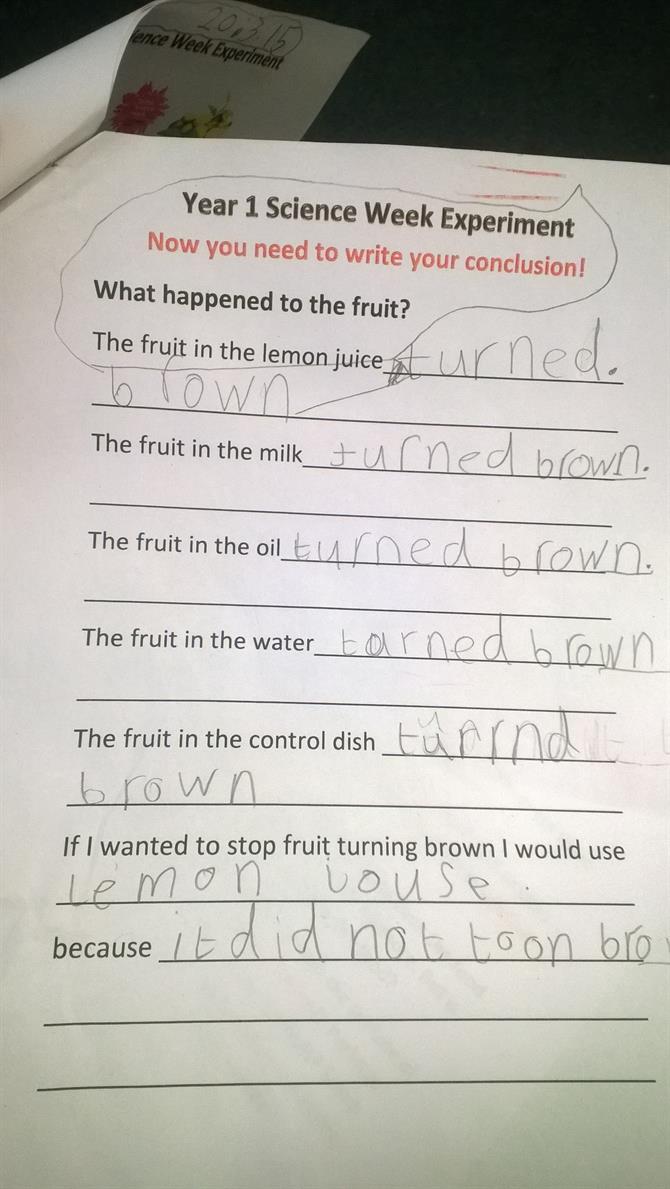 20.3.15
ience Week Experiment
Year 1 Science Week Experiment
Now you need to write your conclusion!
What happened to the fruit?
The fruit in the lemon juice turned.
brown
The fruit in the milk turned brown.
The fruit in the oil turned brown.
The fruit in the water tarned brown
The fruit in the control dish
brown
If I wanted to stop fruit turning brown I would use
lemon
because it did not toon bro